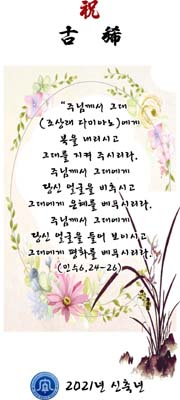 祝
古稀
"주님께서 그대
(조상래 다미아노)에게
복을 내리시고
그대를 지켜 주시리라.
주님께서 그대에게
당신 얼굴을 비추시고
그대에게 은혜를 베푸시리라.
주님께서 그대에게
당신 얼굴을 들어 보이시고
그대에게 평화를 베푸시리라.
(민수6,24-26)
2021년 신축년